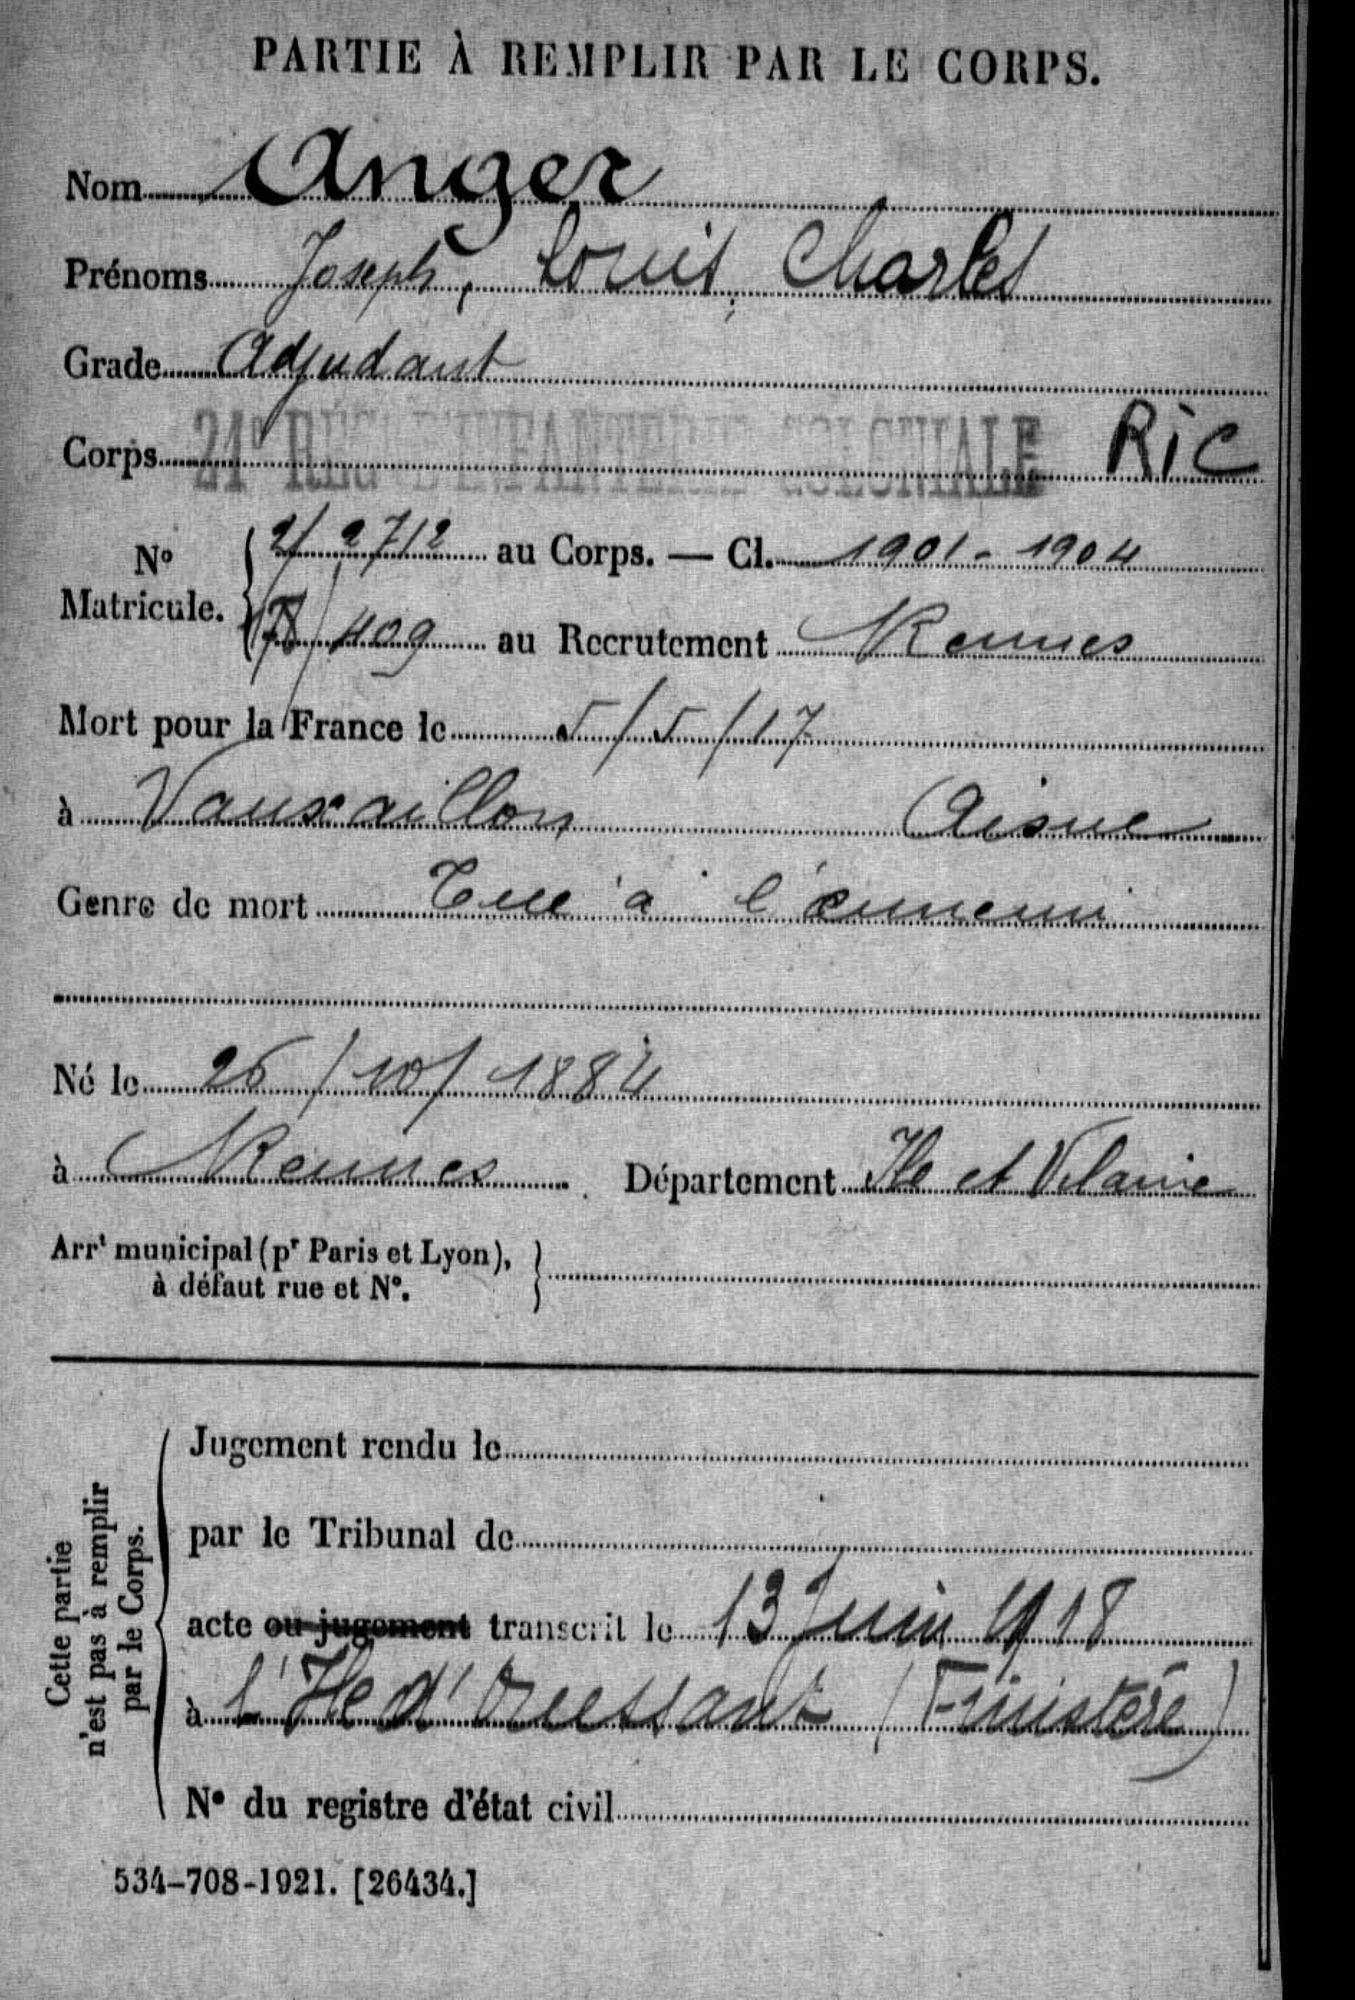 PARTIE À REMPLIR PAR LE CORPS.
Nom Anger
Prénoms Joseph, Louis, Charles
Grade Adjudant
Corps 21e RÉG D'INFANTERIE COLONIALE RIC
No Matricule. 2/2712 au Corps. — Cl. 1901-1904
409 au Recrutement Rennes
Mort pour la France le 5/5/17
à Vauxaillon Aisne
Genre de mort Tué à l'ennemi
Né le 26/10/1884
à Rennes Département Ile et Vilaine
Arrt municipal (pr Paris et Lyon), à défaut rue et No.
Cette partie n'est pas à remplir par le Corps.
Jugement rendu le
par le Tribunal de
acte ou jugement transcrit le 13 Juin 1918
à l'Ile d'Ouessant (Finistère)
No du registre d'état civil
534-708-1921. [26434.]